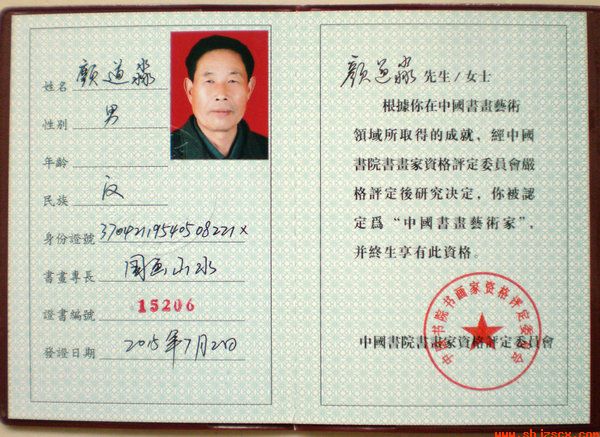 姓名 顾道淼
性别 男
年龄
民族 汉
身份證號 37042119540508221X
書畫專長 国画山水
證書編號 15206
發證日期 2015年7月
顾道淼 先生/女士
根據你在中國書畫藝術
領域所取得的成就，經中國
書院書畫家資格評定委員會嚴
格評定後研究决定，你被認
定爲“中國書畫藝術家”，
并終生享有此資格。
中国书院书画家资格评定委员会
中國書院書畫家資格評定委員會